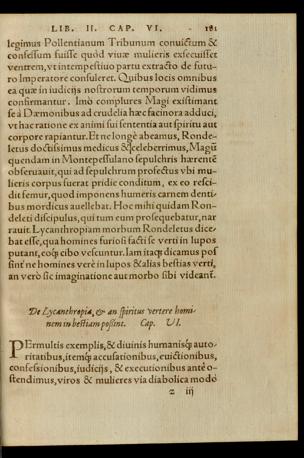 LIB. II. CAP. VI. 181
legimus Pollentianum Tribunum conuictum &
confessum fuisse quòd viuæ mulieris exsecuisset
ventrem, vt intempestiuo partu extracto de futu-
ro Imperatore consuleret. Quibus locis omnibus
ea quæ in iudicijs nostrorum temporum vidimus
confirmantur. Imò complures Magi existimant
se à Dæmonibus ad crudelia hæc facinora adduci,
vt hac ratione ex animi sui sententia aut spiritu aut
corpore rapiantur. Et ne longè abeamus, Ronde-
letus doctissimus medicus &celeberrimus, Magũ
quendam in Montepessulano sepulchris hærentẽ
obseruauit, qui ad sepulchrum profectus vbi mu-
lieris corpus fuerat pridie conditum, ex eo resci-
dit femur, quod imponens humeris carnem denti-
bus mordicus auellebat. Hoc mihi quidam Ron-
deleti discipulus, qui tum eum prosequebatur, nar
rauit. Lycanthropiam morbum Rondeletus dice-
bat esse, qua homines furiosi facti se verti in lupos
putant, eosq́; cibo vescuntur. Iam itaq; dicamus pos
sint ne homines verè in lupos &alias bestias verti,
an verò sic imaginatione aut morbo sibi videant̃.
De Lycanthropia, & an spiritus vertere homi-
nem in bestiam possint. Cap. VI.
PErmultis exemplis, & diuinis humanisq́; auto-
ritatibus, itemq́; accusationibus, euictionibus,
confessionibus, iudicijs, & executionibus antè o-
stendimus, viros & mulieres via diabolica modò
z iij